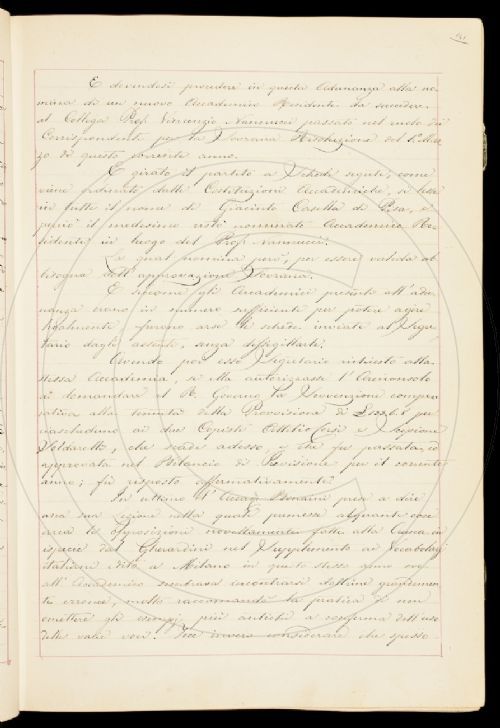 E dovendosi procedere in questa Adunanza alla no-
mina di un nuovo Accademico Residente da succedere
al Collega Prof. Vincenzio Nannucci passato nel ruolo dei
Corrispondenti per la Sovrana Risoluzione del
di questo corrente anno.
E girato il partito a schede segrete, come
viene ordinato dalle Costituzioni Accademiche, si lesse
in tutte il nome di Giacinto Casella di Pisa, e
perciò il medesimo restò nominato Accademico Re-
sidente in luogo del Prof. Nannucci.
La qual nomina però, per essere valida ab-
bisogna dell'approvazione Sovrana.
E siccome gli Accademici presenti all'adu-
nanza erano in numero sufficiente per potere agire
legalmente furono arse le schede inviate al Segre-
tario dagli assenti, senza dissigillarle.
Avendo poi esso Segretario richiesto alla
stessa Accademia, se ella autorizzasse l'Arciconsolo
a domandare al R. Governo la Sovvenzione compro-
vativa alla tenuità della Provvisione di per
ciascheduno ai due Copisti e
che scade adesso e che fu passata, ed
approvata nel Bilancio di Previsione per il corrente
anno; fù risposto affermativamente.
In ultimo l' prese a dire
una sua lezione nella quale premesse alquante cose
circa le opposizioni novellamente fatte alla Crusca in
ispecie dal Gherardini nel Supplemento ai Vocabolarj
italiani edito a Milano in questo stesso anno ove
all'Accademico sembrava incontrarsi dottrine grandemen-
te erronee, molto raccomandò la pratica di non
omettere gli esempj più antichi a conferma dell'uso
delle varie voci. considerare che spesso